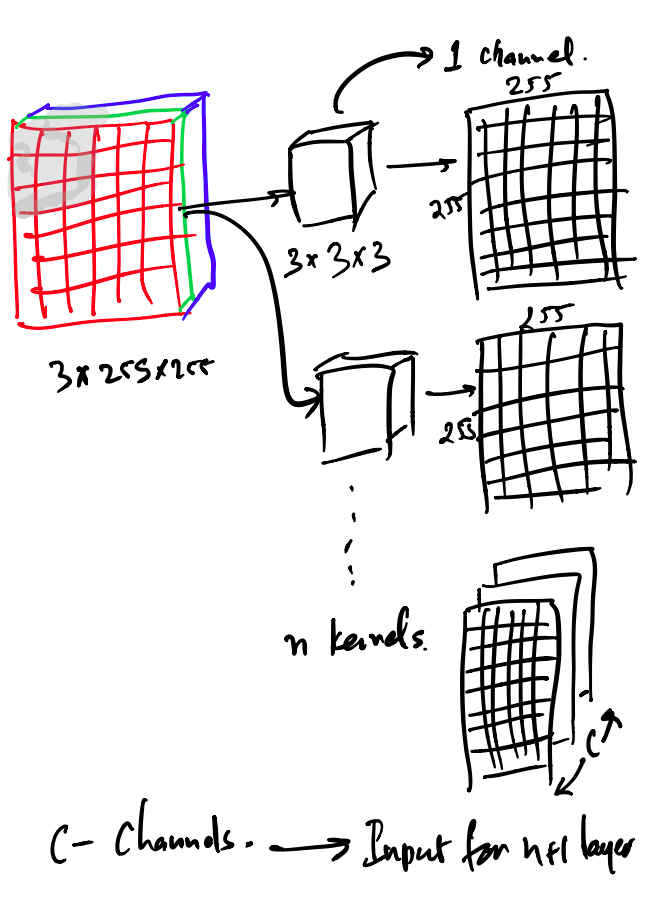 1 channel.
255
255
3×3×3
3×255×255
255
255
n kernels.
C
C- Channels. → Input for n+1 layer